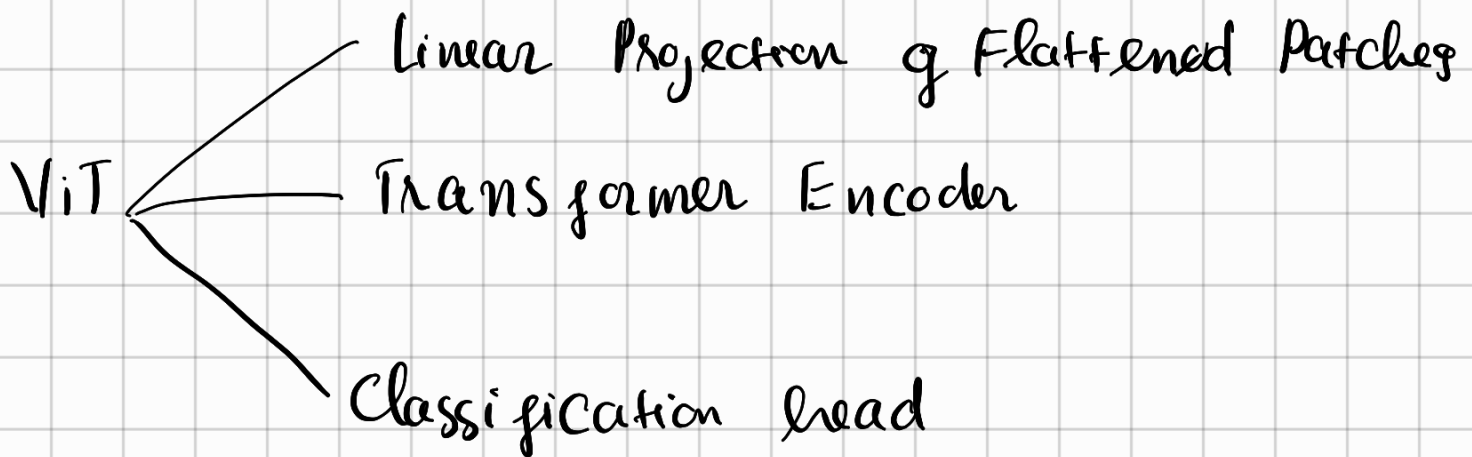 Linear Projection of Flattened Patches
ViT
Transformer Encoder
Classification head